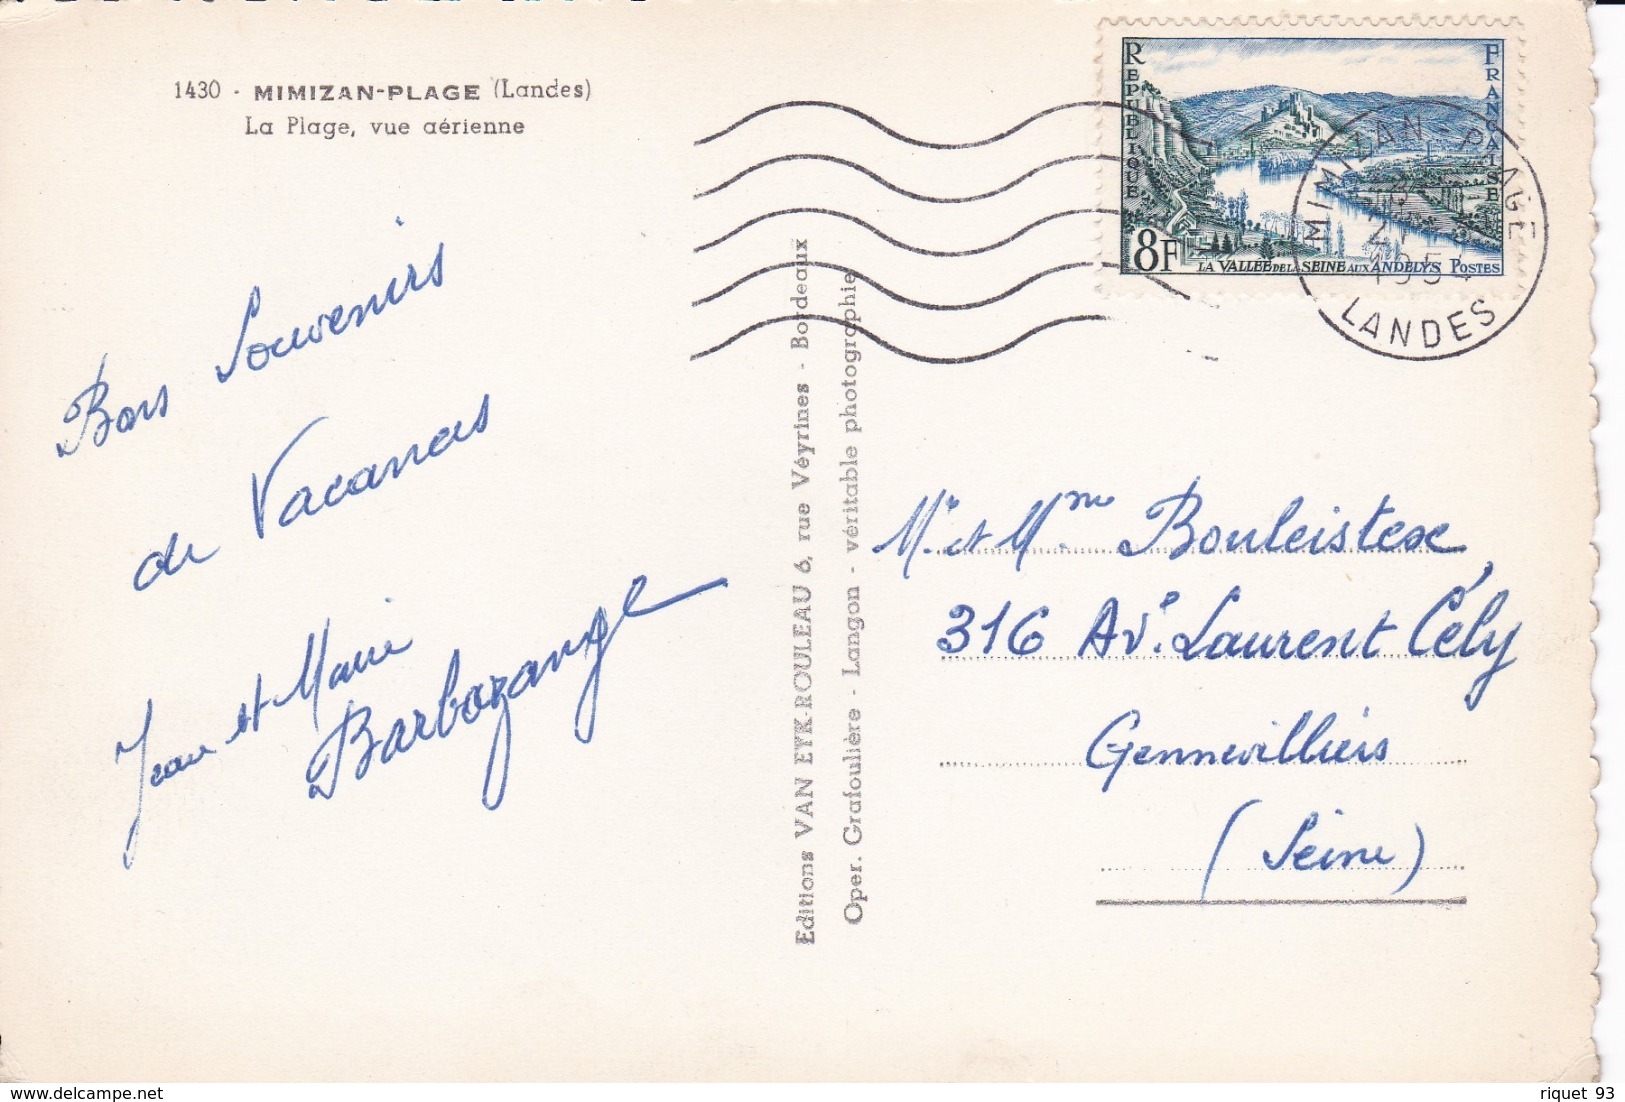 1430 - MIMIZAN-PLAGE (Landes)
La Plage, vue aérienne
Bons Souvenirs
de Vacances
Jean et Marie
Barbozange
Editions VAN EYK-ROULEAU 6, rue Véyrines - Bordeaux
Oper. Grafoulière - Langon - véritable photographie
REPUBLIQUE
FRANÇAISE
8F
LA VALLÉE DE LA SEINE AUX ANDELYS POSTES
MIMIZAN-PLAGE
1954
LANDES
Mr et Mme Bouleistex
316 Ave. Laurent Cély
Gennevilliers
(Seine)
delcampe.net
riquet 93